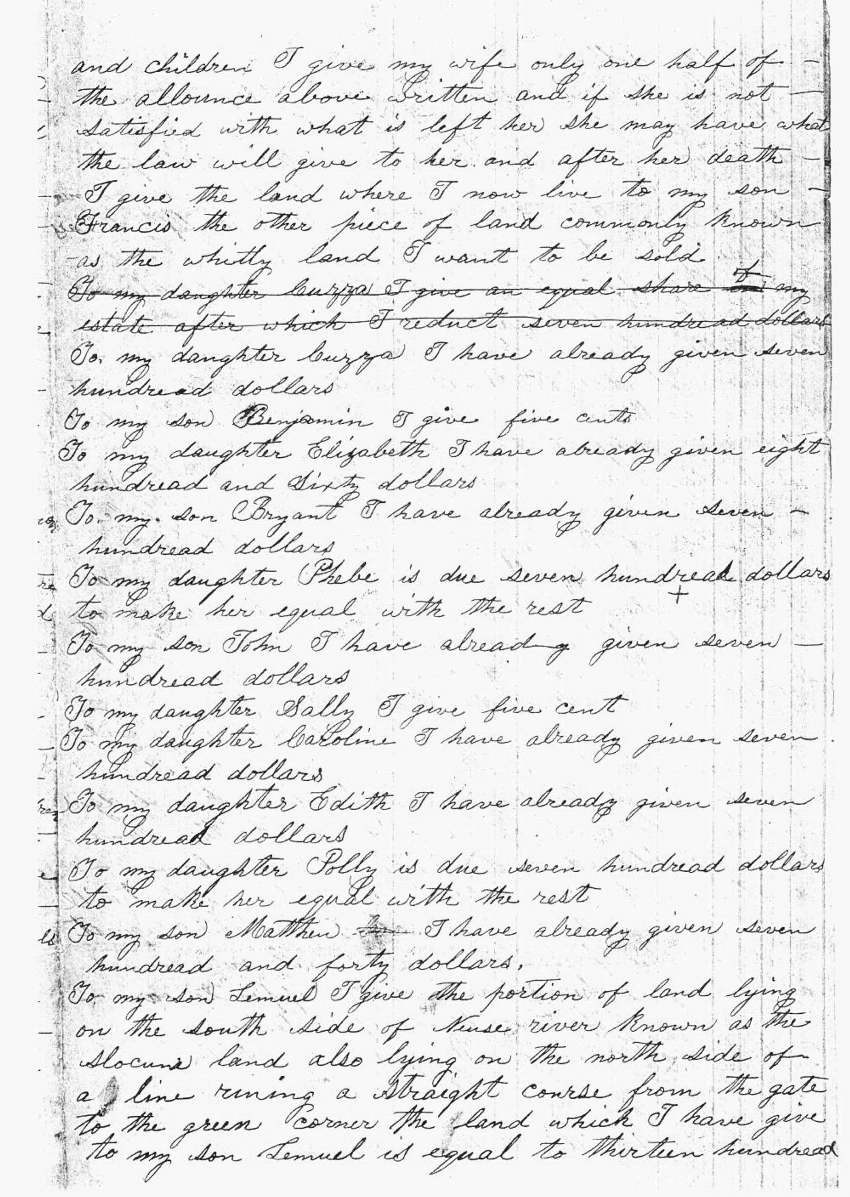 and children I give my wife only one half of —
the allounce above written and if she is not —
satisfied with what is left her she may have what
the law will give to her and after her death —
I give the land where I now live to my son —
Francis the other piece of land commonly known
as the whitly land I want to be sold
To my daughter Cuzza I give an equal share of my
estate after which I reduct seven hundread dollars
To my daughter Cuzza I have already given seven
hundread dollars
To my son Benjamin I give five cents
To my daughter Elizabeth I have already given eight
hundread and Sixty dollars
To my son Bryant I have already given seven —
hundread dollars
To my daughter Phebe is due seven hundread dollars
to make her equal with the rest
To my son John I have already given seven —
hundread dollars
To my daughter Sally I give five cent
To my daughter Caroline I have already given seven
hundread dollars
To my daughter Edith I have already given seven
hundread dollars
To my daughter Polly is due seven hundread dollars
to make her equal with the rest
To my son Matthew I have already given seven
hundread and forty dollars.
To my son Lemuel I give the portion of land lying
on the south side of Neuse river known as the
Slocum land also lying on the north side of
a line runing a straight course from the gate
to the green corner the land which I have give
to my son Lemuel is equal to thirteen hundread